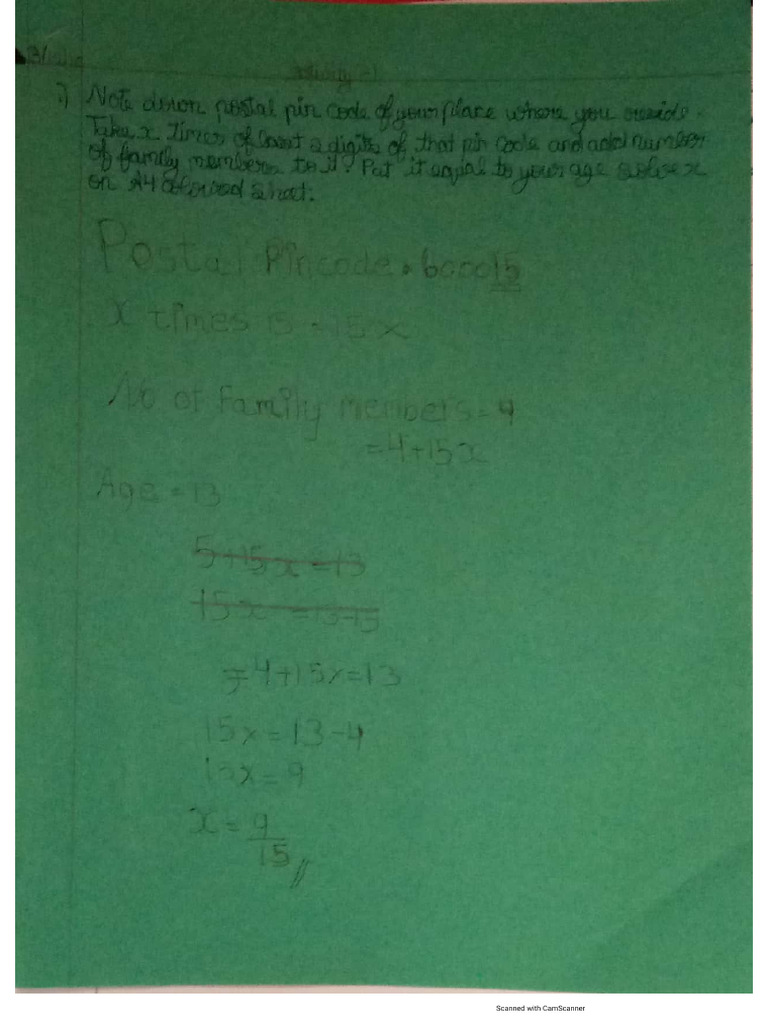 Activity - 1
1) Note down postal pin code of your place where you reside.
Take x times of last 2 digits of that pin code and add number
of family members to it. Put it equal to your age solve x
on A4 coloured sheet.
Postal Pincode = 600015
x times 15 = 15x
No of Family members = 4
= 4+15x
Age = 13
5+15x = 13
15x = 13-15
= 4+15x=13
15x = 13-4
15x = 9
x = 9
15 //
Scanned with CamScanner